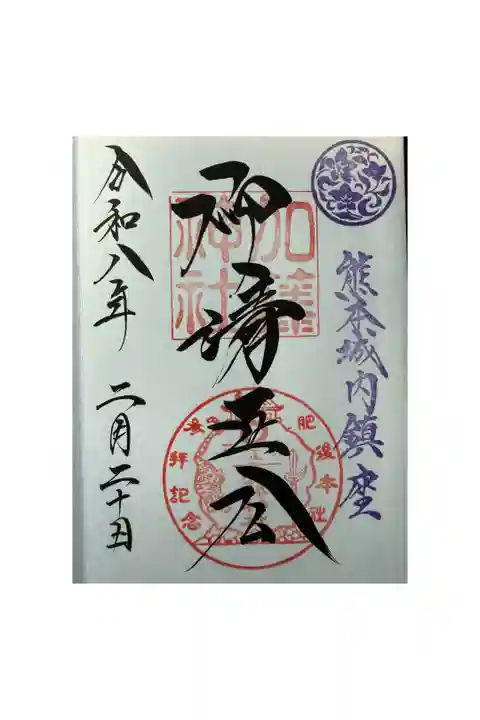 熊本城内鎮座
仰清正公
加藤神社
肥後本社
参拝記念
令和八年 二月二十日